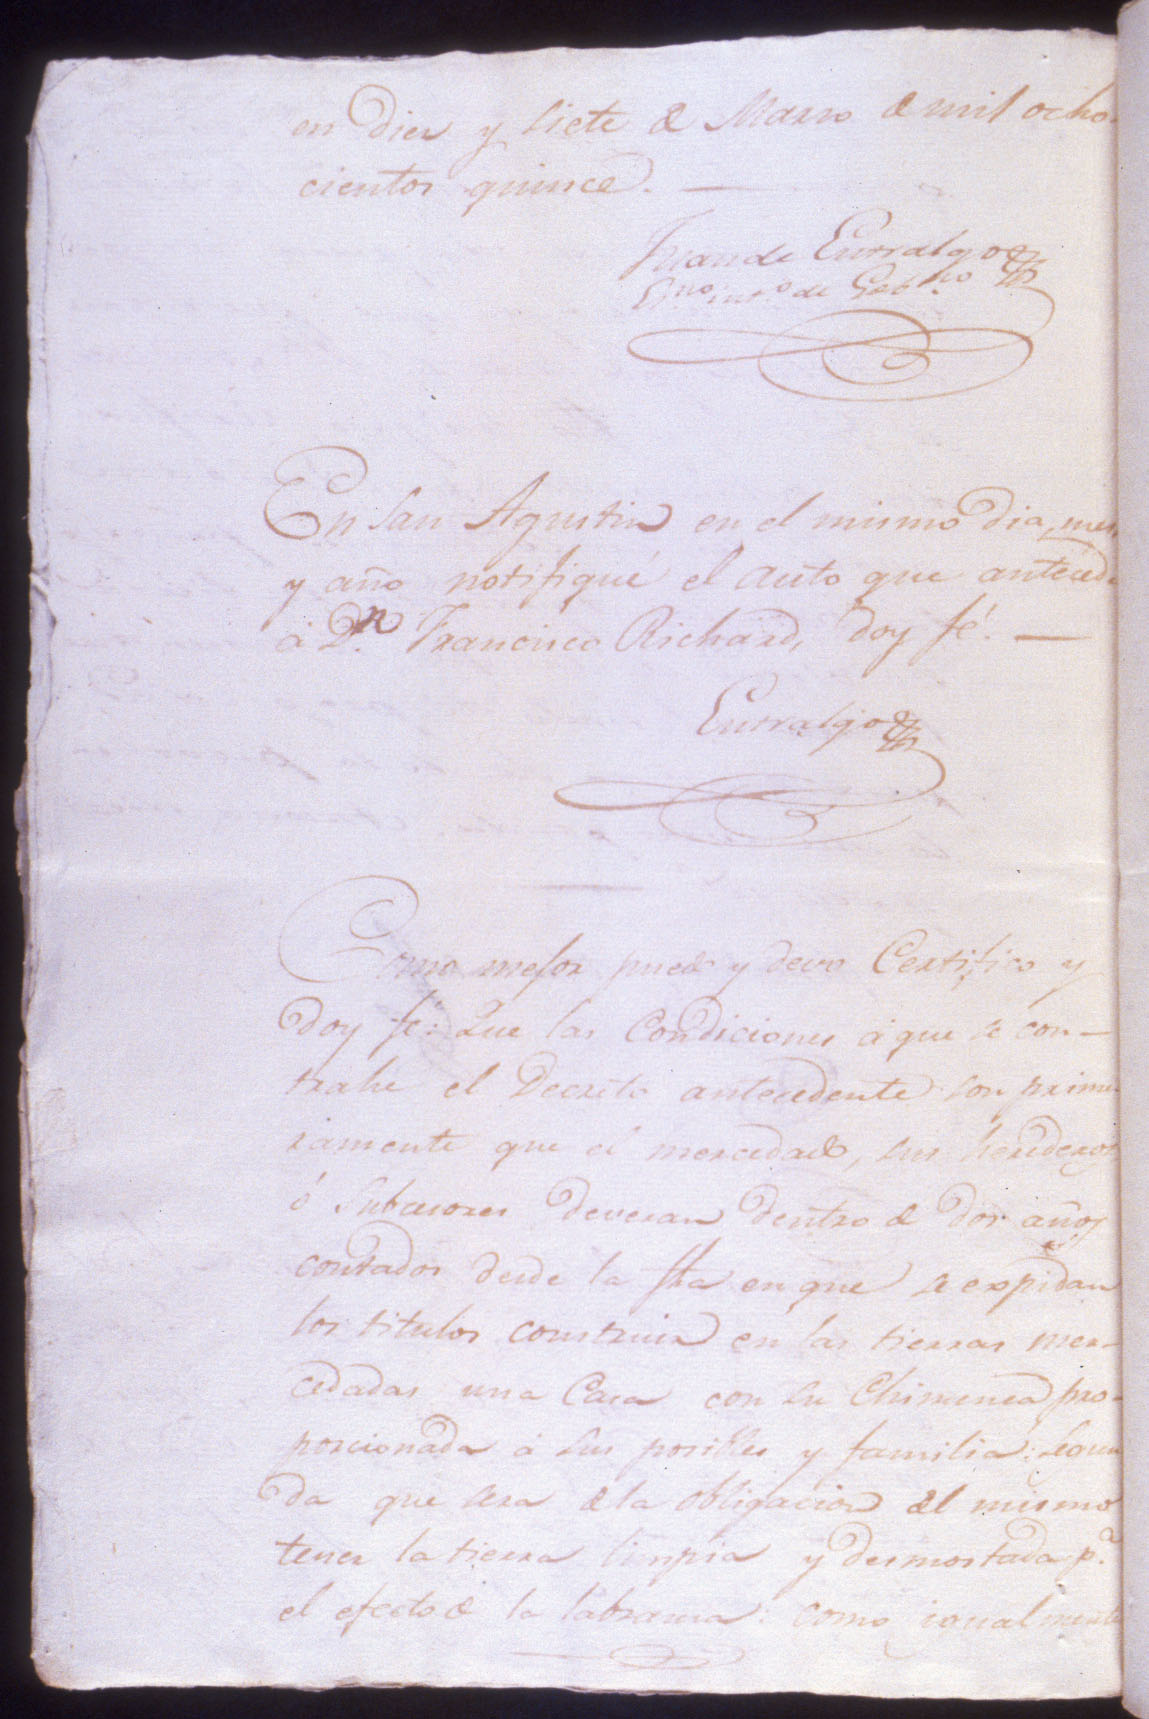 en diez y siete de Marzo de mil ocho-
cientos quince.
Juan de Entralgo
Esno. into. de Gobno.
En San Agustin en el mismo dia, mes
y año notifiqué el auto que antecede
á Dn. Francisco Richard, doy fé.
Entralgo
Como mejor puedo y devo Certifico y
doy fe: Que las Condiciones á que se con-
trahe el Decreto antecedente son prime-
ramente que el mercedado, sus herederos
ó subcesores deveran dentro de dos años
contados desde la fha en que se expidan
los titulos construir en las tierras mer-
cedadas una Casa con su Chimenea pro-
porcionada á sus posibles y familia: segun
da que sera de la obligacion del mismo
tener la tierra limpia y desmostada pa.
el efecto de la labranza: como igualmente